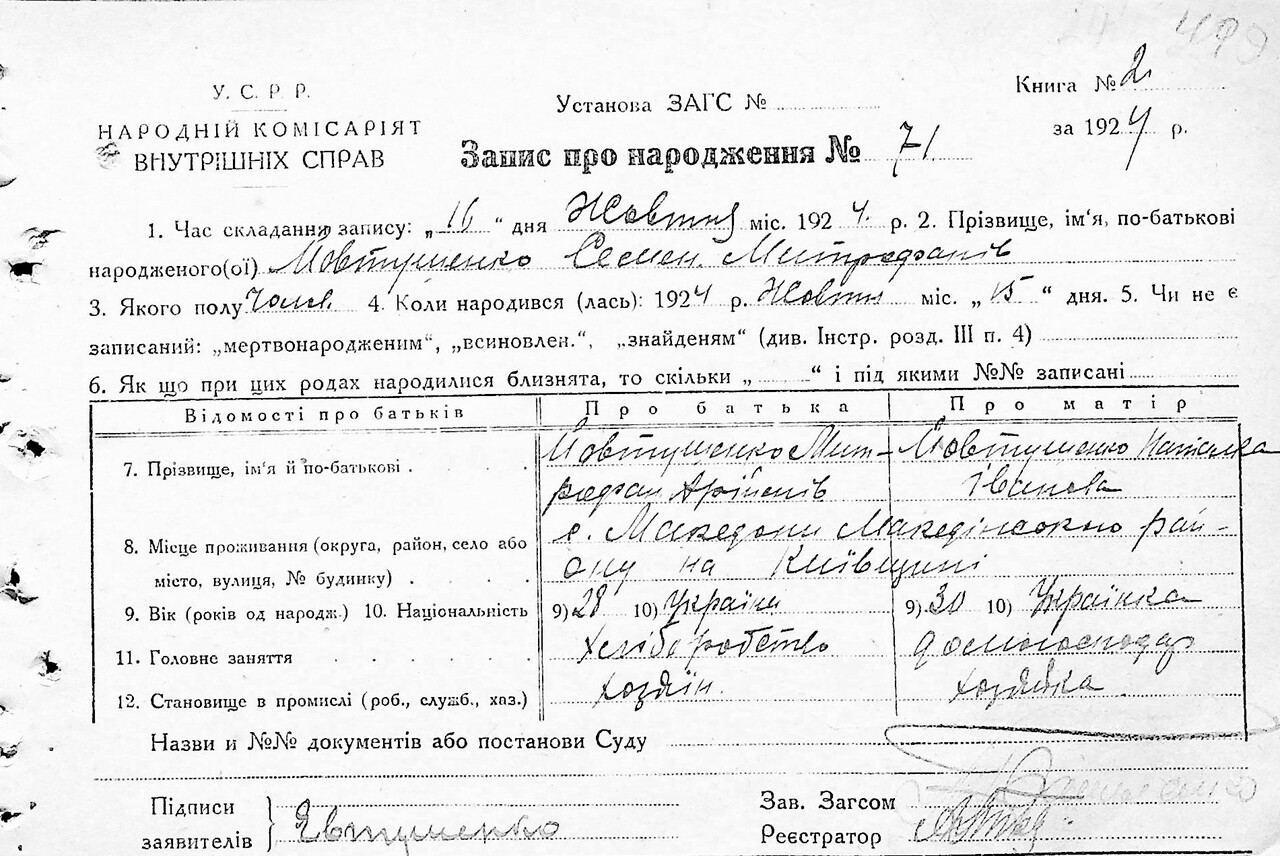 У. С. Р. Р.
НАРОДНІЙ КОМІСАРІЯТ
ВНУТРІШНІХ СПРАВ
Установа ЗАГС №
Книга № 2
за 1924 р.
Запис про народження № 71
1. Час складання запису: „16“ дня Жовтня міс. 1924 р. 2. Прізвище, ім'я, по-батькові
народженого(ої) Йовтушенко Семен Митрофанів
3. Якого полу Чолов. 4. Коли народився (лась): 1924 р. Жовтня міс. „15“ дня. 5. Чи не є
записаний: „мертвонародженим“, „всиновлен.“, „знайденям“ (див. Інстр. розд. III п. 4)
6. Як що при цих родах народилися близнята, то скільки „ “ і під якими №№ записані
Відомості про батьків Про батька Про матір
7. Прізвище, ім'я й по-батькові . . . .
Йовтушенко Мит-
рофан
Йовтушенко Наталка
Іванова
8. Місце проживання (округа, район, село або
місто, вулиця, № будинку) . . . .
с. Македони Македінського рай-
ону на Київщині
9. Вік (років од народж.) 10. Національність 9) 28 10) Українец 9) 30 10) Українка
11. Головне заняття . . . . . Хліборобство домогосподар
12. Становище в промислі (роб., служб., хаз.) хозяїн. хозяйка
Назви и №№ документів або постанови Суду
Підписи
заявителів
Явтушенко
Зав. Загсом
Реєстратор